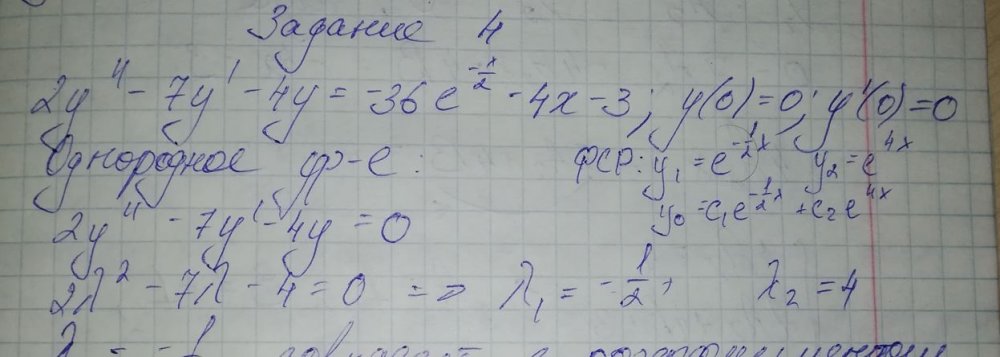 Задание 4
2y'' - 7y' - 4y = -36e^{-x/2} - 4x - 3; y(0)=0; y'(0)=0
Однородное ур-е:
ФСР: y₁ = e^{-1/2 x} y₂ = e^{4x}
y₀ = c₁e^{-1/2 x} + c₂e^{4x}
2y'' - 7y' - 4y = 0
2λ² - 7λ - 4 = 0 => λ₁ = -1/2, λ₂ = 4